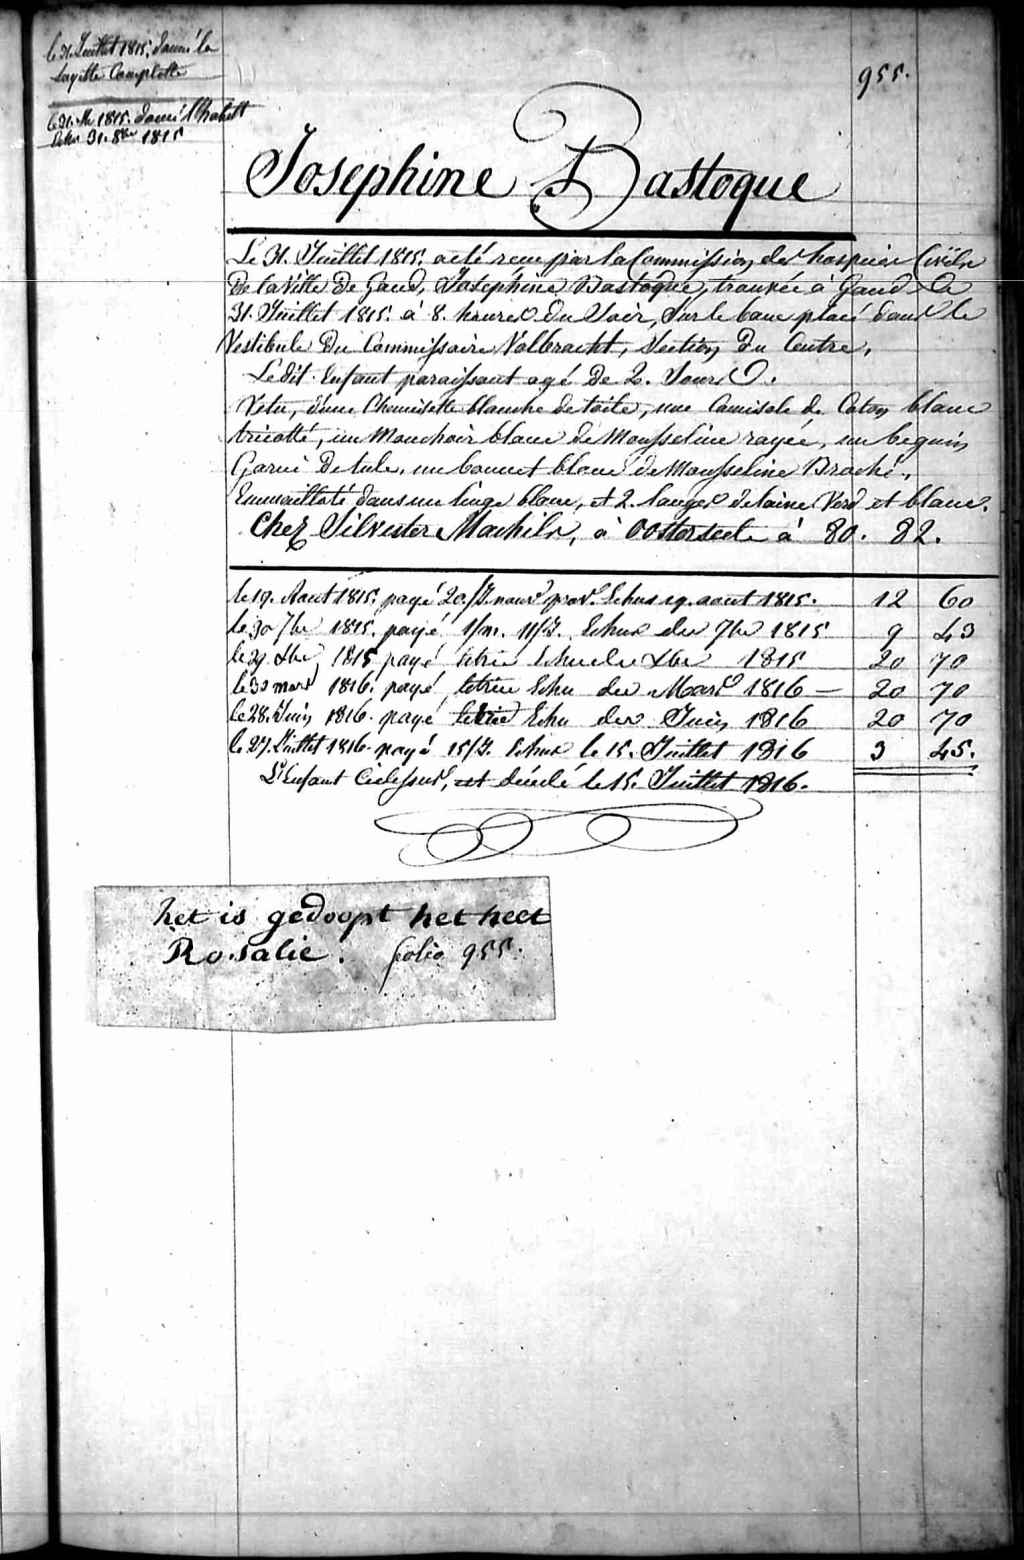 955.
le 31. Juillet 1815. donné la
Layette Complette
le 31. 1815. donné
31. 8bre 1815
Josephine Bastoque
Le 31. Juillet 1815. a été recu par la Commission des hospices Civils
De la Ville De Gand, Joséphine Bastoque, trouvée à Gand le
31. Juillet 1815. à 8. heures du Soir, Sur le banc placé dans le
Vestibule Du Commissaire Volbracht, Section Du Centre,
Le dit Enfant paraissant agé De 2. Jours.
Vetu, d'une Chemisette blanche de toile, une Camisole de Coton blanc
tricotté, un Mouchoir blanc de Mousseline rayée, un beguin
Garni De tule, un bonnet blanc de Mousseline Broché,
Emmailloté dans un linge blanc, et 2. langes de laine Verd et blanc.
Chez Silvester Machiels, à Oosterzeele à 80. 82.
le 19. Aout 1815. payé 20/J. nour. prov. Echus 19. aout 1815. 12 60
le 30 7bre 1815. payé 1/m. 11/J. Echus der 7bre 1815 9 43
le 29 Xbre 1815 payé Echu der Xbre 1815 20 70
le 30 mars 1816. payé Echu der Mars 1816 — 20 70
le 28. Juin 1816. payé Echu der Juin 1816 20 70
le 27. Juillet 1816. payé 15/J. Echus le 15. Juillet 1816 3 45.
L'Enfant Cidessus, est décédé le 15. Juillet 1816.
het is gedoopt het heet
Rosalie. folio 955.